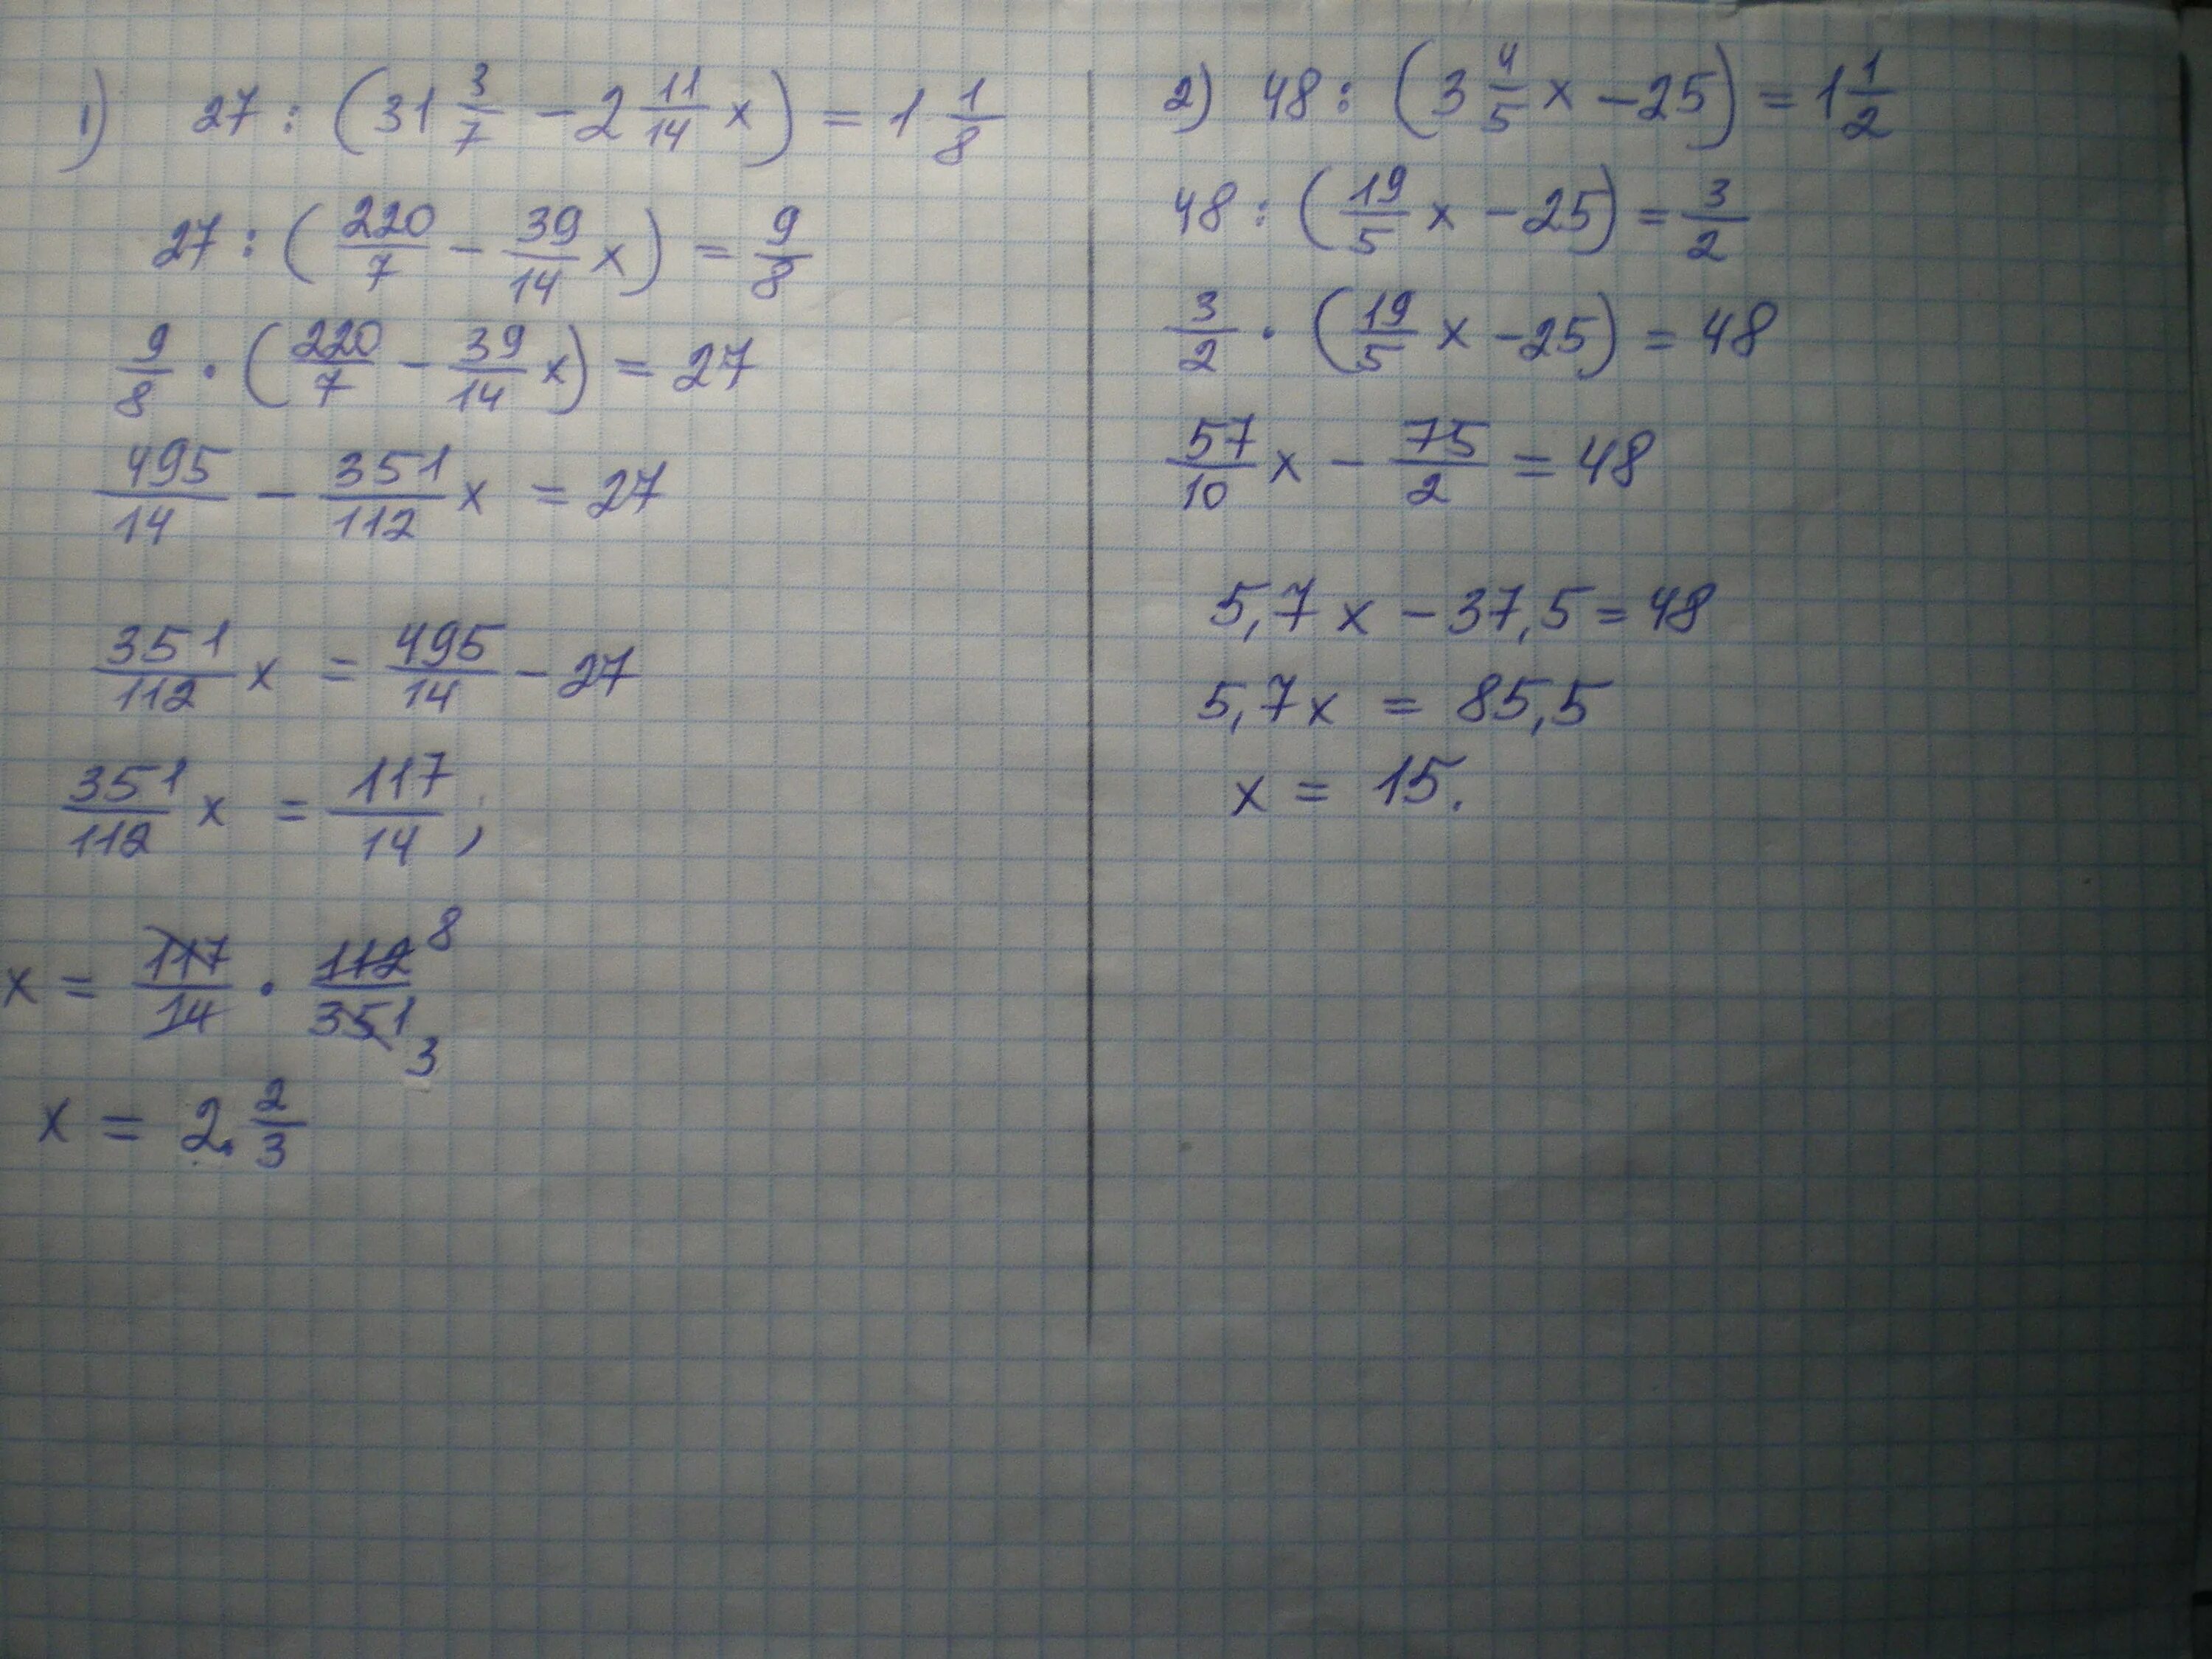 1) 27 : (31 3/7 - 2 11/14 x) = 1 1/8
27 : (220/7 - 39/14 x) = 9/8
9/8 · (220/7 - 39/14 x) = 27
495/14 - 351/112 x = 27
351/112 x = 495/14 - 27
351/112 x = 117/14 ,
x = 117/14 · 112/351 8 3
x = 2 2/3
2) 48 : (3 4/5 x - 25) = 1 1/2
48 : (19/5 x - 25) = 3/2
3/2 · (19/5 x - 25) = 48
57/10 x - 75/2 = 48
5,7 x - 37,5 = 48
5,7 x = 85,5
x = 15.